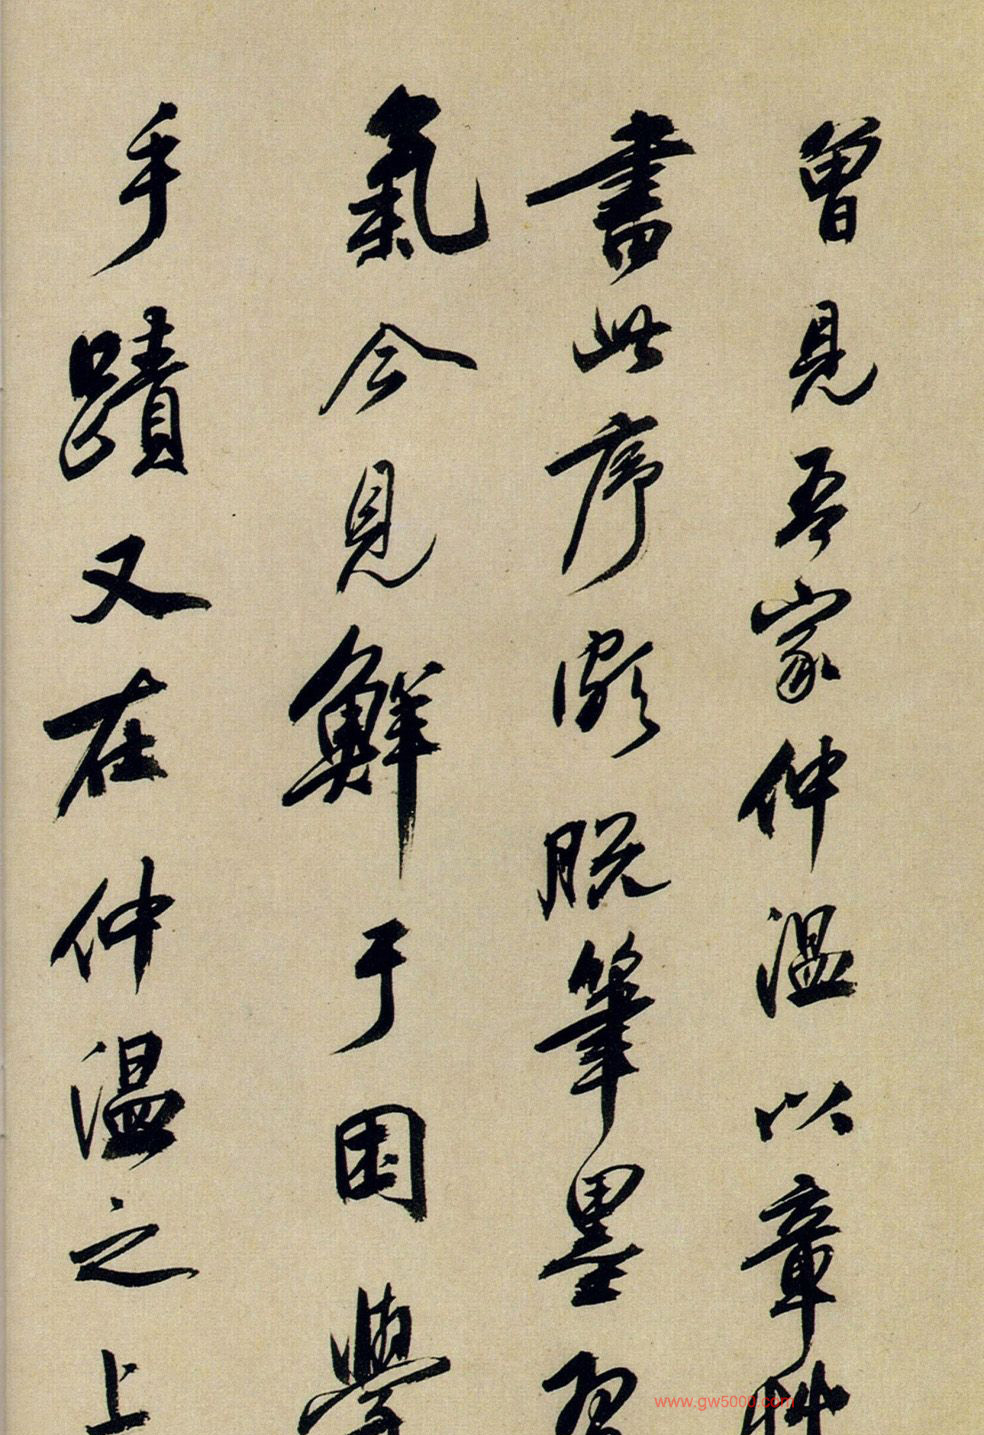 曾見吾家仲温以章草
書此序頗脱筆墨習
氣今見鮮于困學
手蹟又在仲温之上
www.gw5000.com